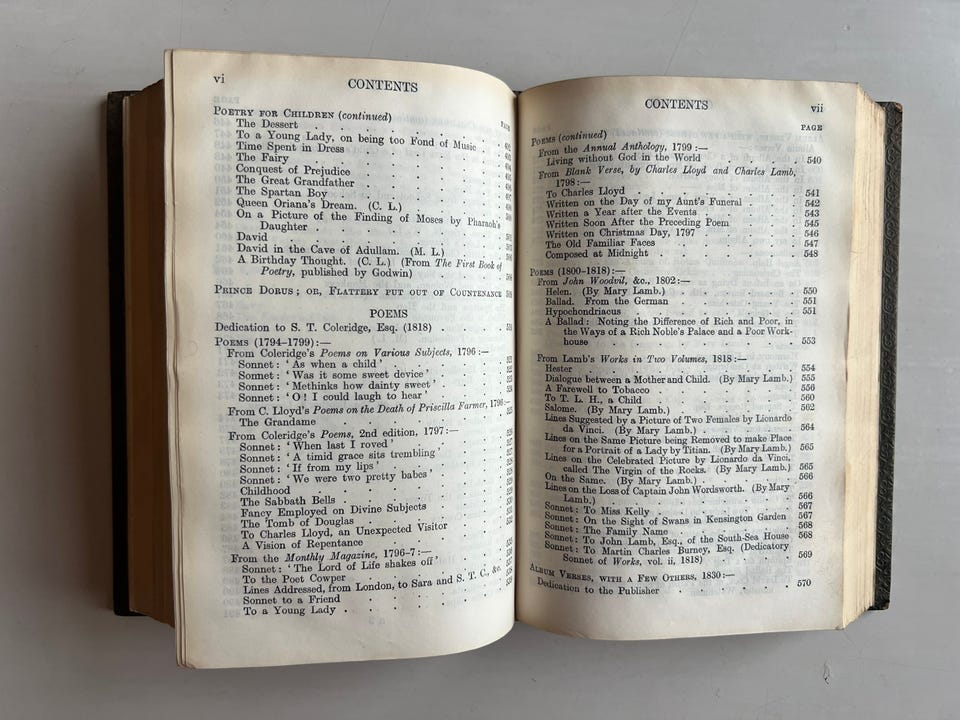 vi
CONTENTS
PAGE
POETRY FOR CHILDREN (continued)
The Dessert
To a Young Lady, on being too Fond of Music
Time Spent in Dress
The Fairy
Conquest of Prejudice
The Great Grandfather
The Spartan Boy
Queen Oriana's Dream. (C. L.)
On a Picture of the Finding of Moses by Pharaoh's
Daughter
David
David in the Cave of Adullam. (M. L.)
A Birthday Thought. (C. L.) (From The First Book of
Poetry, published by Godwin)
PRINCE DORUS; OR, FLATTERY PUT OUT OF COUNTENANCE
POEMS
Dedication to S. T. Coleridge, Esq. (1818)
POEMS (1794–1799):—
From Coleridge's Poems on Various Subjects, 1796:—
Sonnet: 'As when a child'
Sonnet: 'Was it some sweet device'
Sonnet: 'Methinks how dainty sweet'
Sonnet: 'O! I could laugh to hear'
From C. Lloyd's Poems on the Death of Priscilla Farmer, 1796:—
The Grandame
From Coleridge's Poems, 2nd edition, 1797:—
Sonnet: 'When last I roved'
Sonnet: 'A timid grace sits trembling'
Sonnet: 'If from my lips'
Sonnet: 'We were two pretty babes'
Childhood
The Sabbath Bells
Fancy Employed on Divine Subjects
The Tomb of Douglas
To Charles Lloyd, an Unexpected Visitor
A Vision of Repentance
From the Monthly Magazine, 1796–7:—
Sonnet: 'The Lord of Life shakes off'
To the Poet Cowper
Lines Addressed, from London, to Sara and S. T. C., &c.
Sonnet to a Friend
To a Young Lady
CONTENTS
vii
PAGE
POEMS (continued)
From the Annual Anthology, 1799:—
Living without God in the World 540
From Blank Verse, by Charles Lloyd and Charles Lamb,
1798:—
To Charles Lloyd 541
Written on the Day of my Aunt's Funeral 542
Written a Year after the Events 543
Written Soon After the Preceding Poem 545
Written on Christmas Day, 1797 546
The Old Familiar Faces 547
Composed at Midnight 548
POEMS (1800–1818):—
From John Woodvil, &c., 1802:—
Helen. (By Mary Lamb.) 550
Ballad. From the German 551
Hypochondriacus 551
A Ballad: Noting the Difference of Rich and Poor, in
the Ways of a Rich Noble's Palace and a Poor Work-
house 553
From Lamb's Works in Two Volumes, 1818:—
Hester 554
Dialogue between a Mother and Child. (By Mary Lamb.) 555
A Farewell to Tobacco 556
To T. L. H., a Child 560
Salome. (By Mary Lamb.) 562
Lines Suggested by a Picture of Two Females by Lionardo
da Vinci. (By Mary Lamb.) 564
Lines on the Same Picture being Removed to make Place
for a Portrait of a Lady by Titian. (By Mary Lamb.) 565
Lines on the Celebrated Picture by Lionardo da Vinci,
called The Virgin of the Rocks. (By Mary Lamb.) 565
On the Same. (By Mary Lamb.) 566
Lines on the Loss of Captain John Wordsworth. (By Mary
Lamb.) 566
Sonnet: To Miss Kelly 567
Sonnet: On the Sight of Swans in Kensington Garden 567
Sonnet: The Family Name 568
Sonnet: To John Lamb, Esq., of the South-Sea House 568
Sonnet: To Martin Charles Burney, Esq. (Dedicatory
Sonnet of Works, vol. ii, 1818) 569
ALBUM VERSES, WITH A FEW OTHERS, 1830:—
Dedication to the Publisher 570